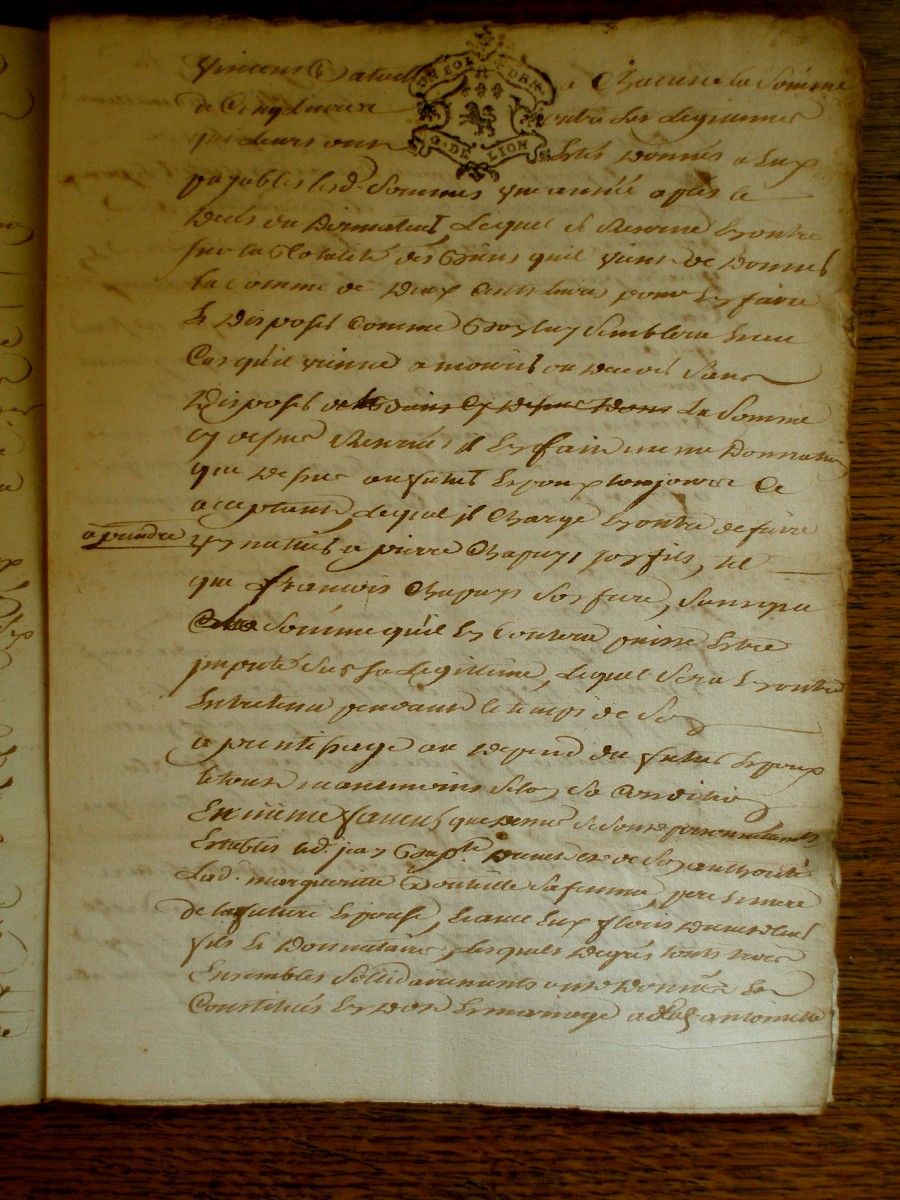 a Chacune la Somme
de Cinq livres outre les Legitimes
qui leurs ont Estés donnés a Eux
payables lesd. Sommes une année apres le
deces du donnateur Lequel se Reserve En outre
sur la totalité des Biens quil vient de donner
la Somme de deux Cents livres pour En faire
Et disposer Comme Bon luy Semblera Et au
Cas qu'il vienne a mourir ou deceder Sans
Disposer de la Somme
Cy dessus Reservée il En fait meme donnation
que dessus au futur Epoux toujours Ce
acceptant Lequel il Charge En outre de faire
a prendre
un metier a pierre Chapuys son fils, tel
que francois Chapuys son frere, Sans que
Somme qu'il En Coutera puisse Estre
imputé Sur Sa Legitime, Lequel Sera En outre
Entretenu pendant le temps de Son
aprentissage au depend du futur Epoux
le tout neanmoins Selon Sa Condition
En meme faveur que dessus Se Sont personnellement
Establis sd. jean Bapte de Son authorité
Lad. marguerite Sa femme, pere Et mere
de la future Epouse, Et avec Eux
fils Et Donnataire, lesquels de gré touts trois
Ensembles Solidairements ont donné Et
Constitués En Dot Et mariage a lad. antoinette
UN SOL
G. DE LION